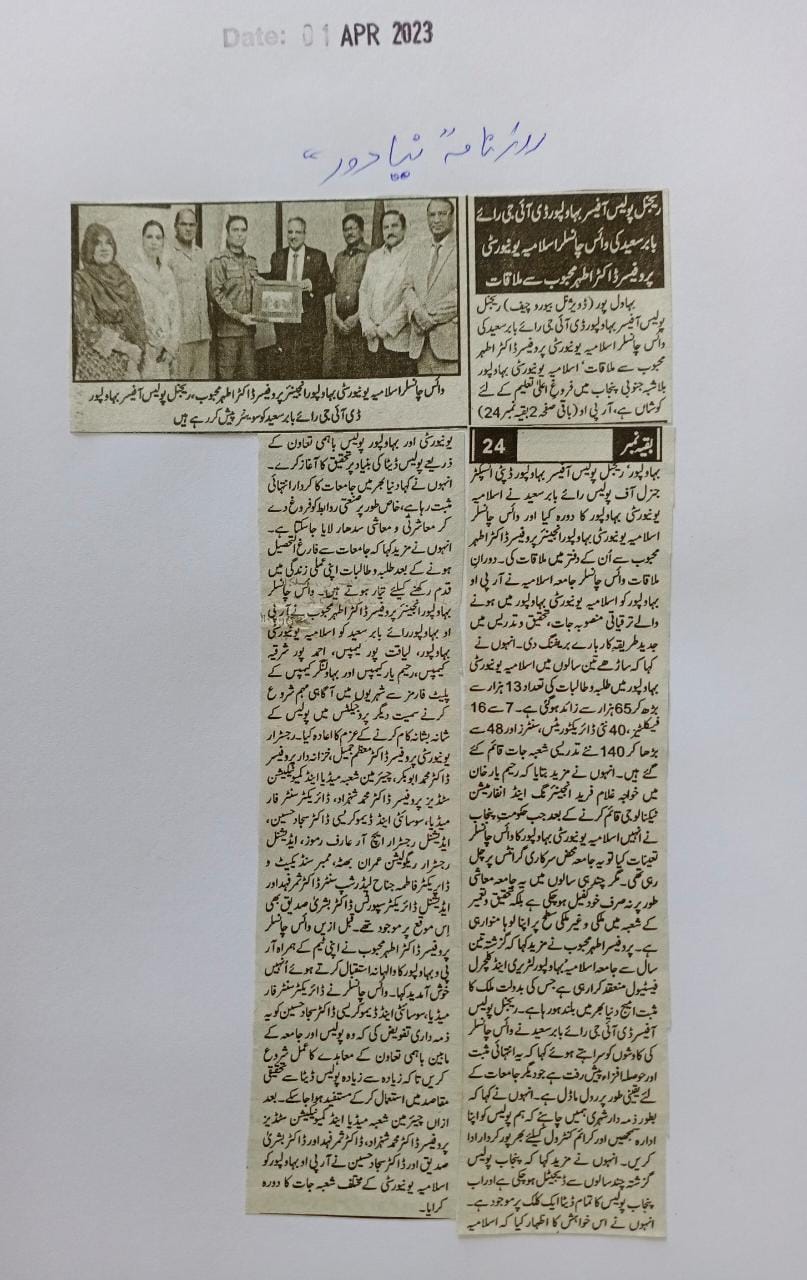 Date: 01 APR 2023
روزنامہ "نیا دور"
ریجنل پولیس آفیسر بہاولپور ڈی آئی جی رائے
بابر سعید کی وائس چانسلر اسلامیہ یونیورسٹی
پروفیسر ڈاکٹر اطہر محبوب سے ملاقات
بہاول پور (ڈویژنل بیورو چیف) ریجنل
پولیس آفیسر بہاولپور ڈی آئی جی رائے بابر سعید کی
وائس چانسلر اسلامیہ یونیورسٹی پروفیسر ڈاکٹر اطہر
محبوب سے ملاقات، اسلامیہ یونیورسٹی
بلاشبہ جنوبی پنجاب میں فروغِ اعلیٰ تعلیم کے لئے
کوشاں ہے، آر پی او (باقی صفحہ 2 بقیہ نمبر 24)
وائس چانسلر اسلامیہ یونیورسٹی بہاولپور انجینئر پروفیسر ڈاکٹر اطہر محبوب، ریجنل پولیس آفیسر بہاولپور
ڈی آئی جی رائے بابر سعید کو سوینئر پیش کر رہے ہیں
بقیہ نمبر 24
بہاولپور، ریجنل پولیس آفیسر بہاولپور ڈپٹی انسپکٹر
جنرل آف پولیس رائے بابر سعید نے اسلامیہ
یونیورسٹی بہاولپور کا دورہ کیا اور وائس چانسلر
اسلامیہ یونیورسٹی بہاولپور انجینئر پروفیسر ڈاکٹر اطہر
محبوب سے اُن کے دفتر میں ملاقات کی۔ دورانِ
ملاقات وائس چانسلر جامعہ اسلامیہ نے آر پی او
بہاولپور کو اسلامیہ یونیورسٹی بہاولپور میں ہونے
والے ترقیاتی منصوبہ جات، تحقیق و تدریس میں
جدید طریقہ کار بارے بریفنگ دی۔ انہوں نے
کہا کہ ساڑھے تین سالوں میں اسلامیہ یونیورسٹی
بہاولپور میں طلبہ و طالبات کی تعداد 13 ہزار سے
بڑھ کر 65 ہزار سے زائد ہو گئی ہے۔ 7 سے 16
فیکلٹیز، 40 نئی ڈائریکٹوریٹس، سنٹرز اور 48 سے
بڑھا کر 140 نئے تدریسی شعبہ جات قائم کئے
گئے ہیں۔ انہوں نے مزید بتایا کہ رحیم یار خان
میں خواجہ غلام فرید انجینئرنگ اینڈ انفارمیشن
ٹیکنالوجی قائم کرنے کے بعد جب حکومتِ پنجاب
نے انہیں اسلامیہ یونیورسٹی بہاولپور کا وائس چانسلر
تعینات کیا تو یہ جامعہ محض سرکاری گرانٹس پر چل
رہی تھی۔ مگر چند ہی سالوں میں یہ جامعہ معاشی
طور پر نہ صرف خود کفیل ہو چکی ہے بلکہ تحقیق و تعمیر
کے شعبہ میں ملکی و غیر ملکی سطح پر اپنا لوہا منوا رہی
ہے۔ پروفیسر اطہر محبوب نے مزید کہا کہ گزشتہ تین
سال سے جامعہ اسلامیہ، بہاولپور لٹریری اینڈ کلچرل
فیسٹیول منعقد کرا رہی ہے جس کی بدولت ملک کا
مثبت امیج دنیا بھر میں بلند ہو رہا ہے۔ ریجنل پولیس
آفیسر ڈی آئی جی رائے بابر سعید نے وائس چانسلر
کی کاوشوں کو سراہتے ہوئے کہا کہ یہ انتہائی مثبت
اور حوصلہ افزاء پیش رفت ہے جو دیگر جامعات کے
لئے یقینی طور پر رول ماڈل ہے۔ انہوں نے کہا کہ
بطور ذمہ دار شہری ہمیں چاہئے کہ ہم پولیس کو اپنا
ادارہ سمجھیں اور کرائم کنٹرول کیلئے بھرپور کردار ادا
کریں۔ انہوں نے مزید کہا کہ پنجاب پولیس
گزشتہ چند سالوں سے ڈیجیٹل ہو چکی ہے اور اب
پنجاب پولیس کا تمام ڈیٹا ایک کلک پر موجود ہے۔
انہوں نے اس خواہش کا اظہار کیا کہ اسلامیہ
یونیورسٹی اور بہاولپور پولیس باہمی تعاون کے
ذریعے پولیس ڈیٹا کی بنیاد پر تحقیق کا آغاز کرے۔
انہوں نے کہا دنیا بھر میں جامعات کا کردار انتہائی
مثبت رہا ہے، خاص طور پر صنعتی روابط کو فروغ دے
کر معاشرتی و معاشی سدھار لایا جا سکتا ہے۔
انہوں نے مزید کہا کہ جامعات سے فارغ التحصیل
ہونے کے بعد طلبہ و طالبات اپنی عملی زندگی میں
قدم رکھنے کیلئے تیار ہوتے ہیں۔ وائس چانسلر
بہاولپور انجینئر پروفیسر ڈاکٹر اطہر محبوب نے آر پی
او بہاولپور رائے بابر سعید کو اسلامیہ یونیورسٹی
بہاولپور، لیاقت پور کیمپس، احمد پور شرقیہ
کیمپس، رحیم یار کیمپس اور بہاولنگر کیمپس کے
پلیٹ فارمز سے شہریوں میں آگاہی مہم شروع
کرنے سمیت دیگر پروجیکٹس میں پولیس کے
شانہ بشانہ کام کرنے کے عزم کا اعادہ کیا۔ رجسٹرار
یونیورسٹی پروفیسر ڈاکٹر معظم جمیل، خزانہ دار پروفیسر
ڈاکٹر محمد ابوبکر، چیئرمین شعبہ میڈیا اینڈ کمیونیکیشن
سٹڈیز پروفیسر ڈاکٹر محمد شہزاد، ڈائریکٹر سنٹر فار
میڈیا، سوسائٹی اینڈ ڈیموکریسی ڈاکٹر سجاد حسین،
ایڈیشنل رجسٹرار ایچ آر عارف رموز، ایڈیشنل
رجسٹرار ریگولیشن عمران بھٹہ، ممبر سنڈیکیٹ و
ڈائریکٹر فاطمہ جناح لیڈرشپ سنٹر ڈاکٹر ثمر فہد اور
ایڈیشنل ڈائریکٹر سپورٹس ڈاکٹر بشریٰ صدیق بھی
اِس موقع پر موجود تھے۔ قبل ازیں وائس چانسلر
پروفیسر ڈاکٹر اطہر محبوب نے اپنی ٹیم کے ہمراہ آر
پی و بہاولپور کا والہانہ استقبال کرتے ہوئے اُنہیں
خوش آمدید کہا۔ وائس چانسلر نے ڈائریکٹر سنٹر فار
میڈیا، سوسائٹی اینڈ ڈیموکریسی ڈاکٹر سجاد حسین کو یہ
ذمہ داری تفویض کی کہ وہ پولیس اور جامعہ کے
مابین باہمی تعاون کے معاہدے کا عمل شروع
کریں تاکہ زیادہ سے زیادہ پولیس ڈیٹا سے تحقیقی
مقاصد میں استعمال کر کے مستفید ہوا جا سکے۔ بعد
ازاں چیئرمین شعبہ میڈیا اینڈ کمیونیکیشن سٹڈیز
پروفیسر ڈاکٹر محمد شہزاد، ڈاکٹر ثمر فہد اور ڈاکٹر بشریٰ
صدیق اور ڈاکٹر سجاد حسین نے آر پی او بہاولپور کو
اسلامیہ یونیورسٹی کے مختلف شعبہ جات کا دورہ
کرایا۔